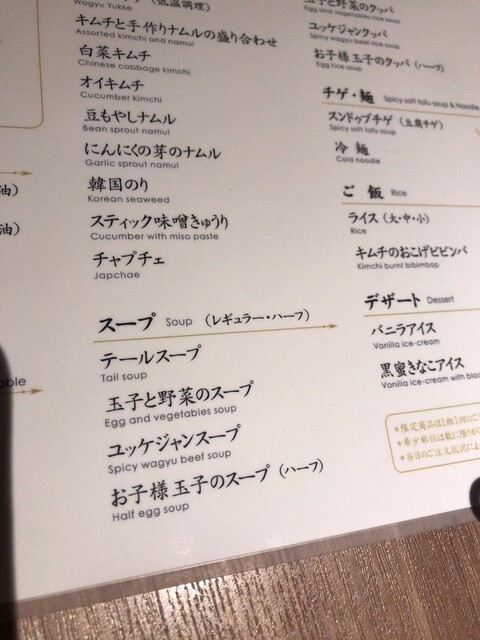 (低温調理)
Wagyu Yukke
キムチと手作りナムルの盛り合わせ
Assorted kimchi and namul
白菜キムチ
Chinese cabbage kimchi
オイキムチ
Cucumber kimchi
豆もやしナムル
Bean sprout namul
にんにくの芽のナムル
Garlic sprout namul
韓国のり
Korean seaweed
スティック味噌きゅうり
Cucumber with miso paste
チャプチェ
Japchae
スープ Soup (レギュラー・ハーフ)
テールスープ
Tail soup
玉子と野菜のスープ
Egg and vegetables soup
ユッケジャンスープ
Spicy wagyu beef soup
お子様玉子のスープ (ハーフ)
Half egg soup
玉子と野菜のクッパ
Egg and vegetables rice soup
ユッケジャンクッパ
Spicy wagyu beef rice soup
お子様玉子のクッパ (ハーフ)
Egg rice soup
チゲ・麺 Spicy soft tofu soup & noodle
スンドゥブチゲ (豆腐チゲ)
Spicy soft tofu soup
冷麺
Cold noodle
ご飯 Rice
ライス (大・中・小)
Rice
キムチのおこげビビンバ
Kimchi burnt bibimbap
デザート Dessert
バニラアイス
Vanilla ice-cream
黒蜜きなこアイス
Vanilla ice-cream with blac
*限定商品は1組1個の
*希少部位は数に限りが
*当日のご注文状況によ
油)
油)
able